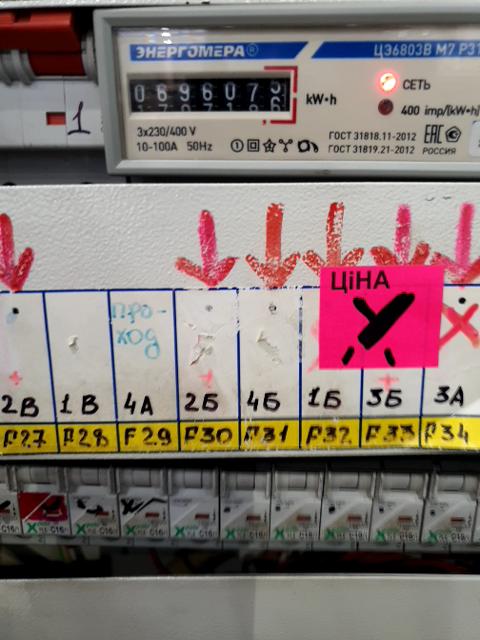 ЭНЕРГОМЕРА®
ЦЭ6803В М7 Р31
kW•h
СЕТЬ
400 imp/[kW•h]
3x230/400 V
10-100A 50Hz
ГОСТ 31818.11-2012
ГОСТ 31819.21-2012
ЕАС
РОССИЯ
1
ЦіНА
ПРО-
ХОД
2В 1В 4А 2Б 4Б 1Б 3Б 3А
F27 F28 F29 F30 F31 F32 F33 F34